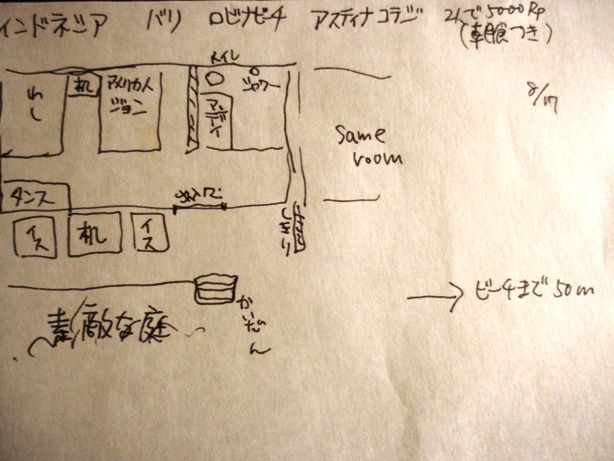 インドネシア バリ ロビナビーチ アスティナコテジ 2人で5000Rp
(朝食つき)
8/17
トイレ
シャワー
机
アメリカ人
ジョン
わし
マンデイ
same
room
タンス
出入口
イス
机
イス
しきり
→ ビーチまで50m
かいだん
素敵な庭